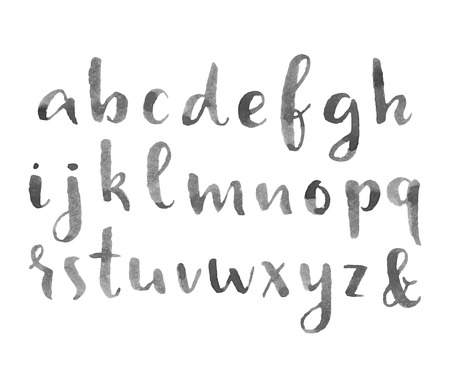 abcdefgh
ijklmnopq
rstuvwxyz&